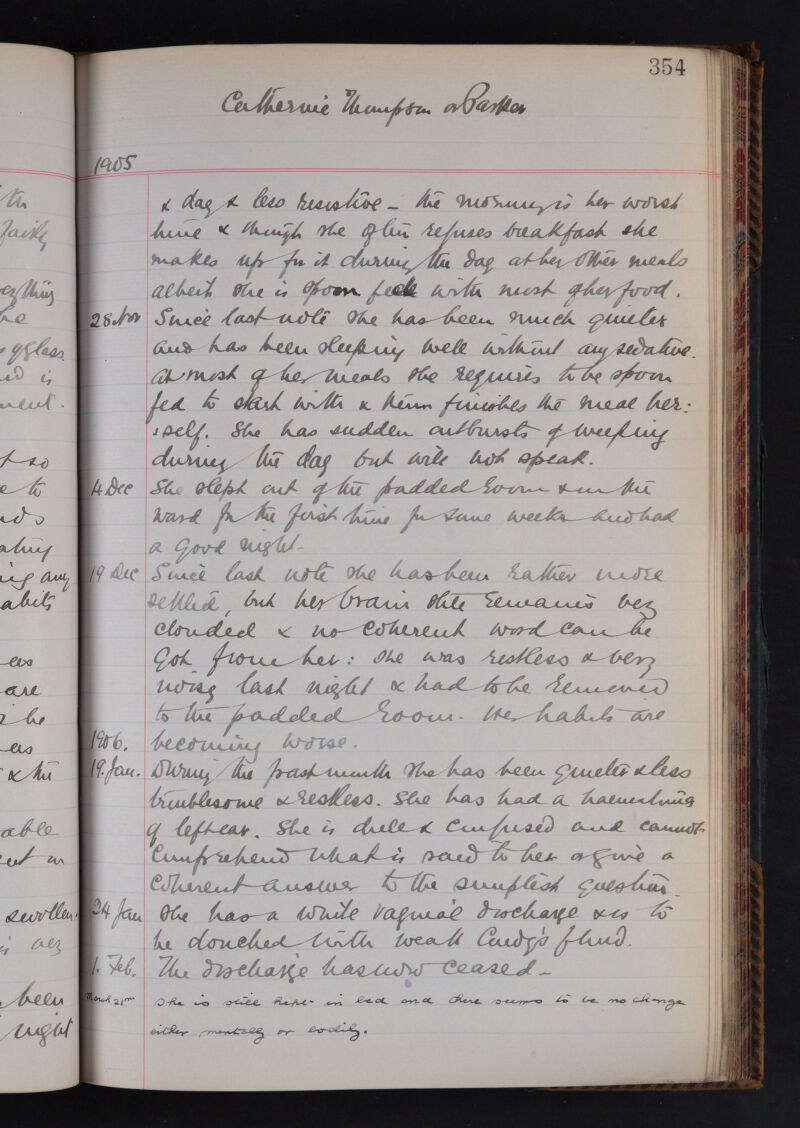 354
Catherine Thompson or Parker
1905
& day & less resistive – the morning is her worst
time & though she often refuses breakfast she
makes up for it during the day at her other meals
albeit she is spoon fed with most of her food.
28 Nov Since last note she has been much quieter
and has been sleeping well without any sedative.
At most of her meals she requires to be spoon
fed to start with & then finishes the meal her:
:self. She has sudden outbursts of weeping
during the day but will not speak.
4 Dec She slept out of the padded room & in the
ward for the first time for some weeks and had
a good night –
19 Dec Since last note she has been rather more
settled, but her brain state remains very
clouded & no coherent word can be
got from her: she was restless & very
noisy last night & had to be removed
to the padded room. Her habits are
1906. becoming worse.
19. Jan. During the past month she has been quieter & less
troublesome & restless. She has had a haematoma
of left ear. She is dull & confused and cannot
comprehend what is said to her or give a
coherent answer to the simplest question.
24 Jan She has a white vaginal discharge & is to
be douched with weak Condy's fluid.
1. Feb. The discharge has now ceased –
March 21st She is still kept in bed and there seems to be no change
either mentally or bodily.
th
fairly
everything
he
glass
is
ment.
so
to
any
habits
as
are
be
as
& the
able
swollen.
is very
been
night